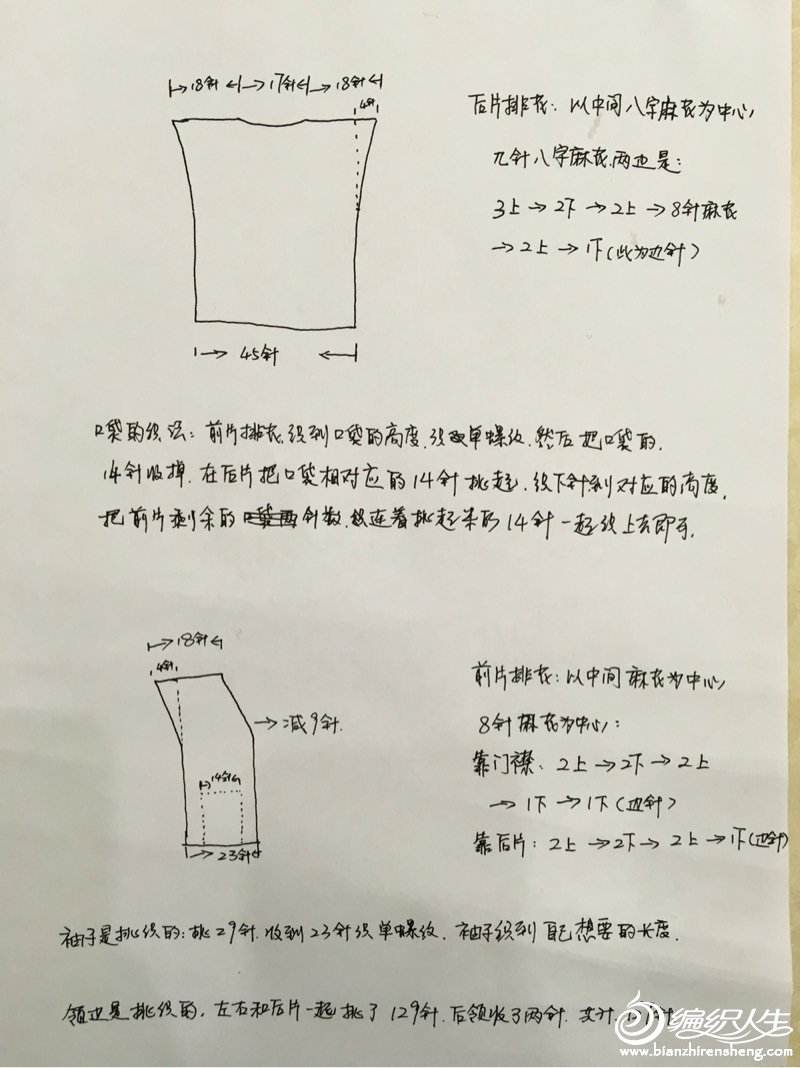 18针 17针 18针
4针
45针
后片排花：以中间八字麻花为中心，
九针八字麻花，两边是：
3上→2下→2上→8针麻花
→2上→1下(此为边针)
口袋的织法：前片排花，织到口袋的高度，织单螺纹，然后把口袋的，
14针收掉，在后片把口袋相对应的14针挑起，织下针到对应的高度，
把前片剩余的针数，连着挑起来的14针一起织上去即可。
18针
4针
减9针.
14针
23针
前片排花：以中间麻花为中心，
8针麻花为中心：
靠门襟：2上→2下→2上
→1下→1下(边针)
靠后片：2上→2下→2上→1下(边针)
袖子是挑织的：挑29针，收到23针织单螺纹，袖子织到自己想要的长度.
领边是挑织的，左右和后片一起挑了129针，后领收了两针，共计
编织人生
www.bianzhirensheng.com